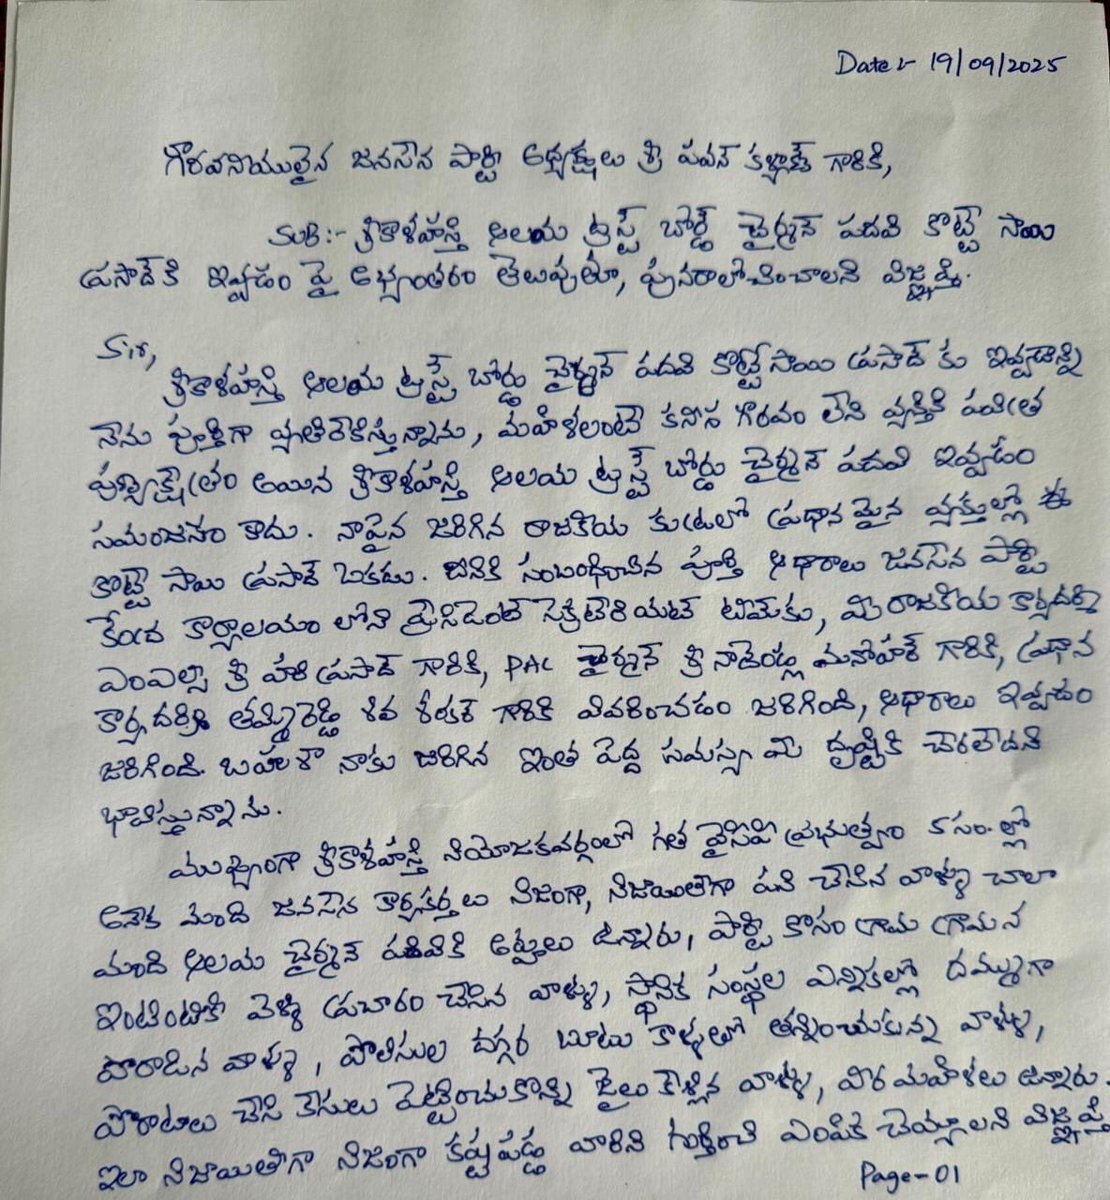 Date :- 19/09/2025
గౌరవనీయులైన జనసేన పార్టీ అధ్యక్షులు శ్రీ పవన్ కళ్యాణ్ గారికి,
SUB:- శ్రీకాళహస్తి ఆలయ ట్రస్ట్ బోర్డ్ చైర్మన్ పదవి కొట్టె సాయి
ప్రసాద్ కి ఇవ్వడం పై అభ్యంతరం తెలుపుతూ, పునరాలోచించాలని విజ్ఞప్తి.
Sir,
శ్రీకాళహస్తి ఆలయ ట్రస్ట్ బోర్డు చైర్మన్ పదవి కొట్టే సాయి ప్రసాద్ కు ఇవ్వడాన్ని
నేను పూర్తిగా వ్యతిరేకిస్తున్నాను, మహిళలంటే కనీస గౌరవం లేని వ్యక్తికి పవిత్ర
పుణ్యక్షేత్రం అయిన శ్రీకాళహస్తి ఆలయ ట్రస్ట్ బోర్డు చైర్మన్ పదవి ఇవ్వడం
సమంజసం కాదు. నాపైన జరిగిన రాజకీయ కుట్రలో ప్రధానమైన వ్యక్తుల్లో ఈ
కొట్టె సాయి ప్రసాద్ ఒకడు. దీనికి సంబంధించిన పూర్తి ఆధారాలు జనసేన పార్టీ
కేంద్ర కార్యాలయం లోని ప్రెసిడెంట్ సెక్రటేరియట్ టీమ్‌కు, మీ రాజకీయ కార్యదర్శి
ఎంఎల్సీ శ్రీ హరి ప్రసాద్ గారికి, PAC చైర్మన్ శ్రీ నాదెండ్ల మనోహర్ గారికి, ప్రధాన
కార్యదర్శి తమ్మిరెడ్డి శివ శంకర్ గారికి వివరించడం జరిగింది, ఆధారాలు ఇవ్వడం
జరిగింది. బహుశా నాకు జరిగిన ఇంత పెద్ద సమస్య మీ దృష్టికి చేరలేదని
భావిస్తున్నాను.
ముఖ్యంగా శ్రీకాళహస్తి నియోజకవర్గంలో గత వైసీపీ ప్రభుత్వం 5 సం.ల్లో
అనేక మంది జనసేన కార్యకర్తలు నిజంగా, నిజాయితీగా పని చేసిన వాళ్ళు చాలా
మంది ఆలయ చైర్మన్ పదవికి అర్హులు ఉన్నారు, పార్టీ కోసం గ్రామ గ్రామన
ఇంటింటికీ వెళ్ళి ప్రచారం చేసిన వాళ్ళు, స్థానిక సంస్థల ఎన్నికల్లో దమ్ముగా
పోరాడిన వాళ్ళు, పోలీసుల దగ్గర బూటు కాళ్ళతో తన్నించుకున్న వాళ్ళు,
పోరాటాలు చేసి కేసులు పెట్టించుకొన్ని జైలు కెళ్లిన వాళ్ళు, వీర మహిళలు ఉన్నారు.
ఇలా నిజాయితీగా నిజంగా కష్టపడ్డ వారిని గుర్తించి ఎంపిక చెయ్యాలని విజ్ఞప్తి
Page-01